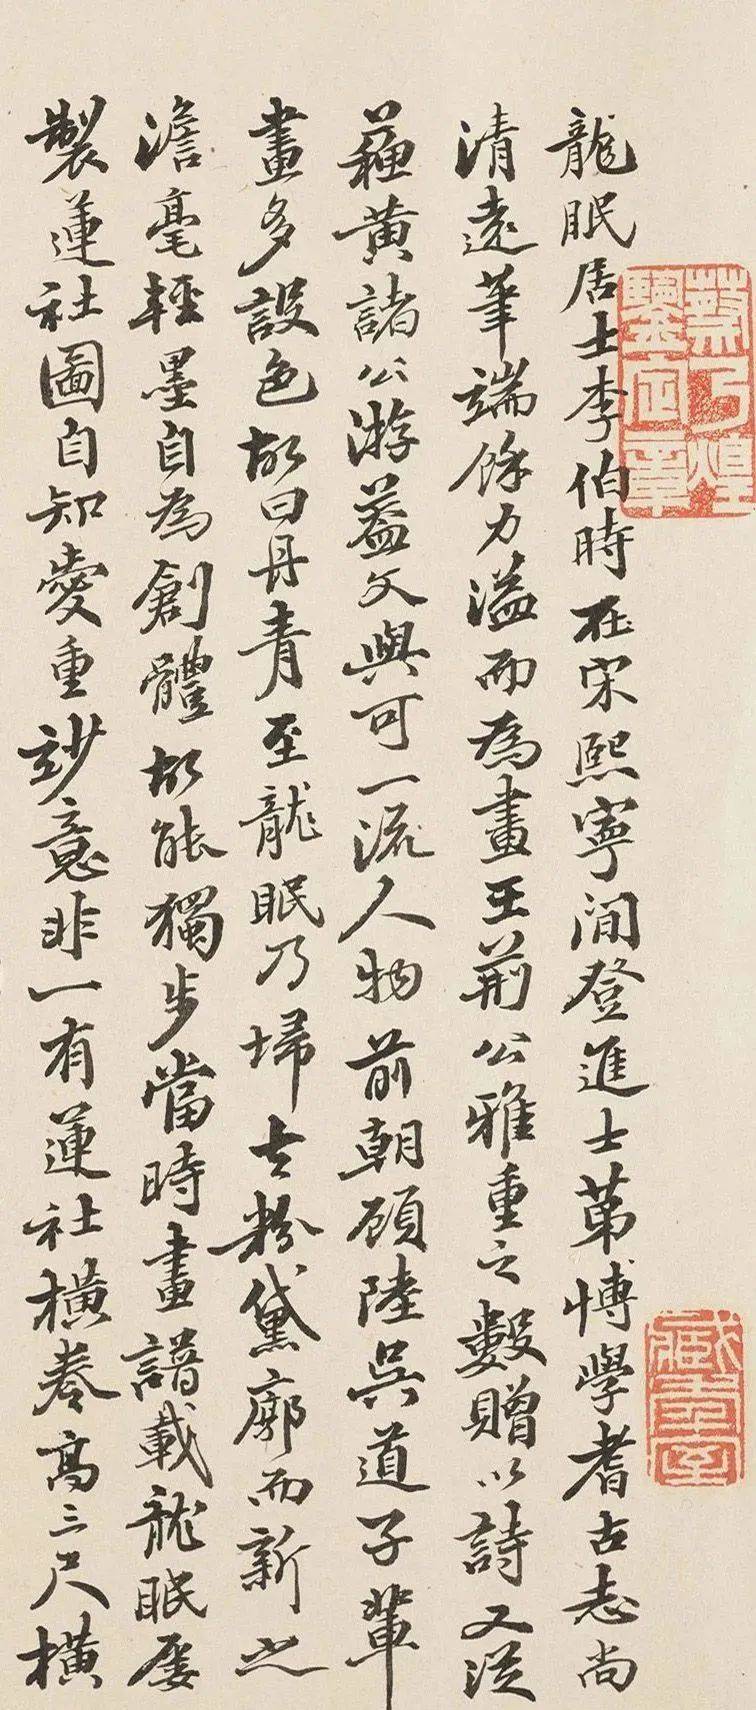 龍眠居士李伯時在宋熙寧間登進士第博學耆古志尚
清遠筆端餘力溢而為畫王荊公雅重之數贈以詩又從
蘓黃諸公游葢文與可一流人物前朝顧陸吳道子輩
畫多設色故曰丹青至龍眠乃埽去粉黛廓而新之
澹毫輕墨自為創體故能獨步當時畫譜載龍眠屡
製蓮社圖自知愛重玅意非一有蓮社橫卷高三尺橫
蔡乃煌
鑒定章